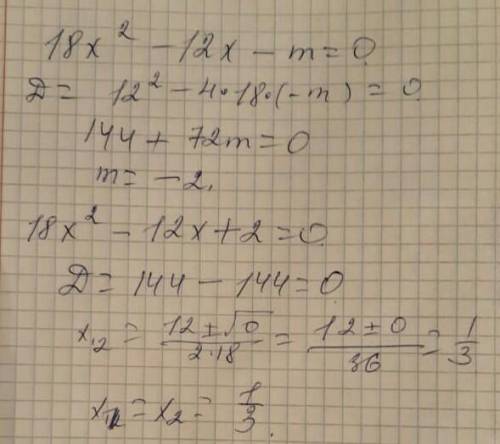 18x² - 12x - m = 0
D = 12² - 4·18·(-m) = 0
144 + 72m = 0
m = -2.
18x² - 12x + 2 = 0
D = 144 - 144 = 0
x₁₂ = (12 ± √0)/(2·18) = (12 ± 0)/36 = 1/3
x₁ = x₂ = 1/3.